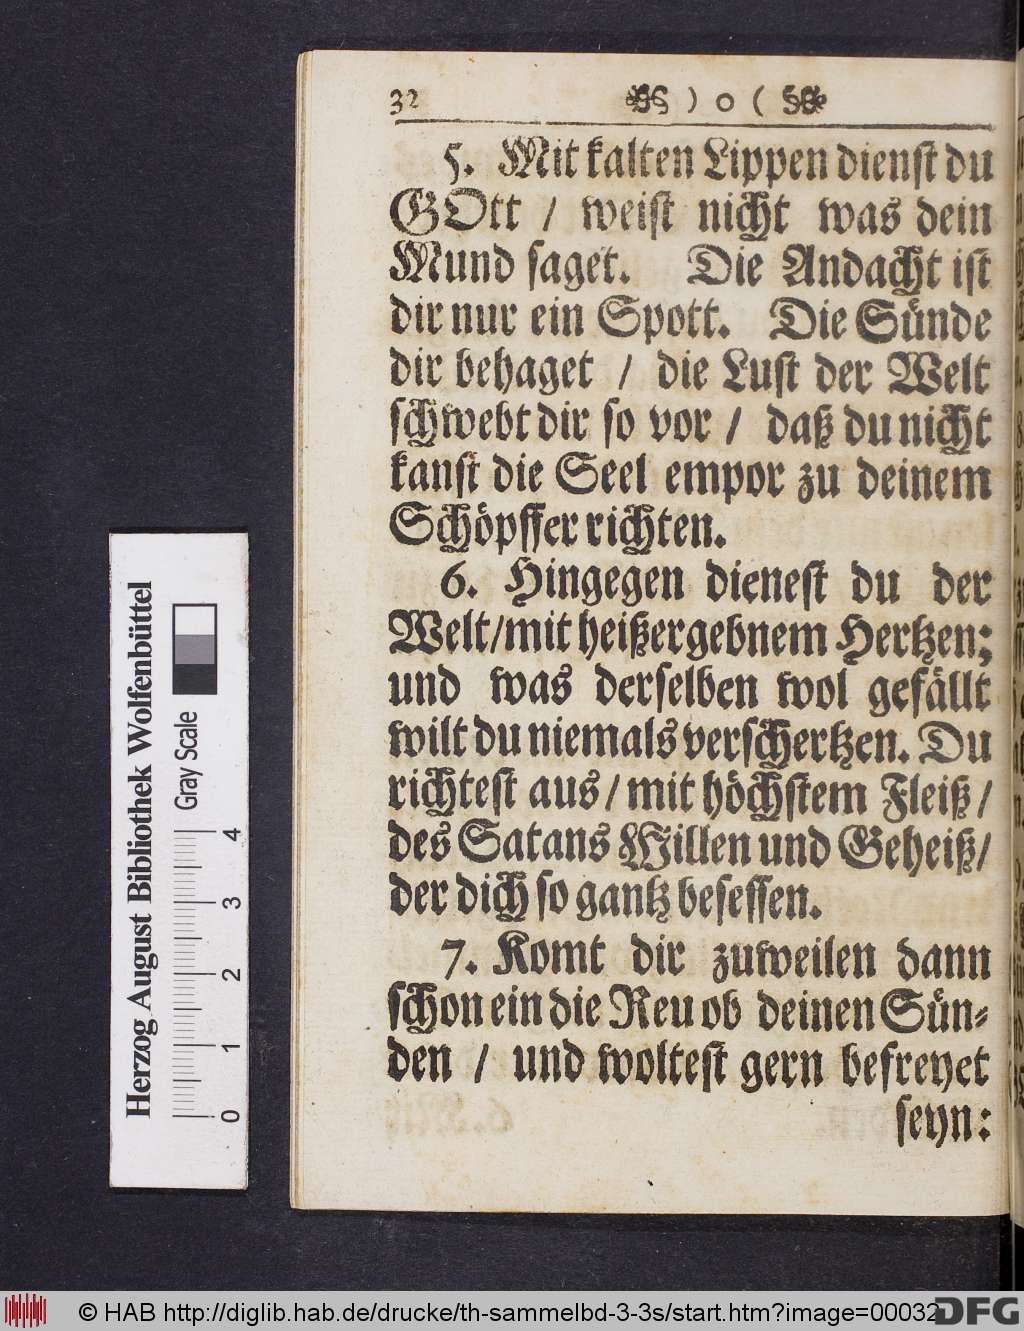 32 ) o (
5. Mit kalten Lippen dienst du
GOtt / weist nicht was dein
Mund saget. Die Andacht ist
dir nur ein Spott. Die Sünde
dir behaget / die Lust der Welt
schwebt dir so vor / daß du nicht
kanst die Seel empor zu deinem
Schöpffer richten.
6. Hingegen dienest du der
Welt/mit heißergebnem Hertzen;
und was derselben wol gefällt
wilt du niemals verschertzen. Du
richtest aus/mit höchstem Fleiß/
des Satans Willen und Geheiß/
der dich so gantz besessen.
7. Komt dir zuweilen dann
schon ein die Reu ob deinen Sün-
den / und woltest gern befreyet
seyn:
Herzog August Bibliothek Wolfenbüttel
Gray Scale
0 1 2 3 4
© HAB http://diglib.hab.de/drucke/th-sammelbd-3-3s/start.htm?image=00032
DFG